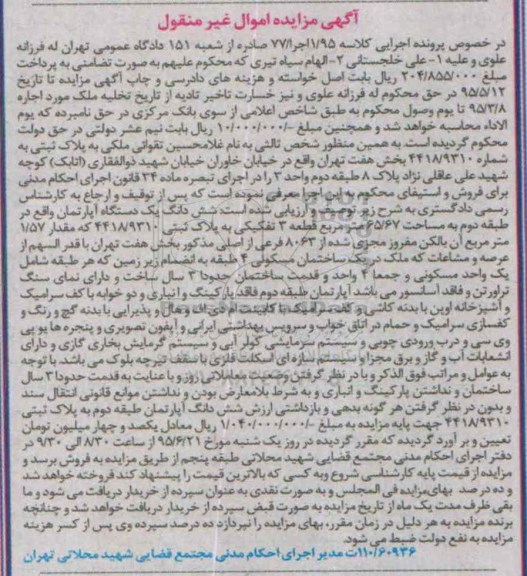 آگهی مزایده اموال غیر منقول
در خصوص پرونده اجرایی کلاسه ۱/۹۵اجرا/۷۷ صادره از شعبه ۱۵۱ دادگاه عمومی تهران له فرزانه
علوی و علیه ۱-علی خلجستانی ۲-الهام سیاه تیری که محکوم علیهم به صورت تضامنی به پرداخت
مبلغ ۲۰۴/۸۵۵/۰۰۰ ریال بابت اصل خواسته و هزینه های دادرسی و چاپ آگهی مزایده تا تاریخ
۹۵/۵/۱۲ در حق محکوم له فرزانه علوی و نیز خسارت تاخیر تادیه از تاریخ تخلیه ملک مورد اجاره
۹۵/۳/۸ تا یوم وصول محکوم به طبق شاخص اعلامی از سوی بانک مرکزی در حق نامبرده که یوم
الاداء محاسبه خواهد شد و همچنین مبلغ -/۱۰/۰۰۰/۰۰۰ ریال بابت نیم عشر دولتی در حق دولت
محکوم گردیده است. به همین منظور شخص ثالثی به نام غلامحسین تقوائی ملکی به پلاک ثبتی به
شماره ۴۴۱۸/۹۳۱۰ بخش هفت تهران واقع در خیابان خاوران خیابان شهید ذوالفقاری (اتابک) کوچه
شهید علی عاقلی نژاد پلاک ۸ طبقه دوم واحد ۳ را در اجرای تبصره ماده ۳۴ قانون اجرای احکام مدنی
برای فروش و استیفای محکوم به این اجرا معرفی نموده است که پس از توقیف و ارجاع به کارشناس
رسمی دادگستری به شرح زیر توصیف و ارزیابی شده است: شش دانگ یک دستگاه آپارتمان واقع در
طبقه دوم به مساحت ۶۵/۶۷ متر مربع قطعه ۳ تفکیکی به پلاک ثبتی ۴۴۱۸/۹۳۱۰ که مقدار ۱/۵۷
متر مربع آن بالکن مفروز مجزی شده از ۸۰۶۳ فرعی از اصلی مذکور بخش هفت تهران با قدر السهم از
عرصه و مشاعات که ملک در یک ساختمان مسکونی ۴ طبقه به انضمام زیر زمین که هر طبقه شامل
یک واحد مسکونی و جمعا ۴ واحد و قدمت ساختمان حدودا ۳ سال ساخت و دارای نمای سنگ
تراورتن و فاقد آسانسور می باشد آپارتمان طبقه دوم فاقد پارکینگ و انباری و دو خوابه با کف سرامیک
و آشپزخانه اوپن با بدنه کاشی و کف سرامیک با کابینت ام دی اف و هال و پذیرایی با بدنه گچ و رنگ و
کفسازی سرامیک و حمام در اتاق خواب و سرویس بهداشتی ایرانی و آیفون تصویری و پنجره ها یو پی
وی سی و درب ورودی چوبی و سیستم سرمایشی کولر آبی و سیستم گرمایش بخاری گازی و دارای
انشعابات آب و گاز و برق مجزا و سیستم سازه ای اسکلت فلزی با سقف تیرچه بلوک می باشد. با توجه
به عوامل و مراتب فوق الذکر و با در نظر گرفتن وضعیت معاملاتی روز و با عنایت به قدمت حدودا ۳ سال
ساختمان و نداشتن پارکینگ و انباری و به شرط بلامعارض بودن و نداشتن موانع قانونی انتقال سند
و بدون در نظر گرفتن هر گونه بدهی و بازداشتی ارزش شش دانگ آپارتمان طبقه دوم به پلاک ثبتی
۴۴۱۸/۹۳۱۰ جهت پایه مزایده به مبلغ -/۱/۰۴۰/۰۰۰/۰۰۰ ریال معادل یکصد و چهار میلیون تومان
تعیین و بر آورد گردیده که مقرر گردیده در روز یک شنبه مورخ ۹۵/۶/۲۱ از ساعت ۸/۳۰ الی ۹/۳۰ در
دفتر اجرای احکام مدنی مجتمع قضایی شهید محلاتی طبقه پنجم از طریق مزایده به فروش برسد و
مزایده از قیمت پایه کارشناسی شروع و به کسی که بالاترین قیمت را پیشنهاد کند فروخته خواهد شد
و ده در صد بهای مزایده فی المجلس و به صورت نقدی به عنوان سپرده از خریدار دریافت می شود و ما
بقی ظرف مدت یک ماه از تاریخ مزایده به صورت قبض سپرده از خریدار دریافت خواهد شد و چنانچه
برنده مزایده به هر دلیل در زمان مقرر، بهای مزایده را نپردازد ده درصد سپرده وی پس از کسر هزینه
مزایده به نفع دولت ضبط می شود.
۱۱۰/۶۰۹۳۶ت مدیر اجرای احکام مدنی مجتمع قضایی شهید محلاتی تهران